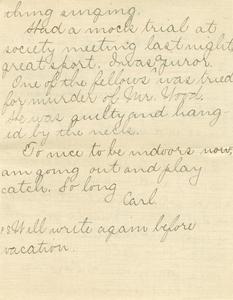 thing singing.
Had a mock trial at
society meeting last night
great sport. I was juror.
One of the fellows was tried
for murder of Mr. Wood.
He was guilty and hang-
ed by the neck.
To nice to be indoors now,
am going out and play
catch. So long
Carl.
Will write again before
vacation.